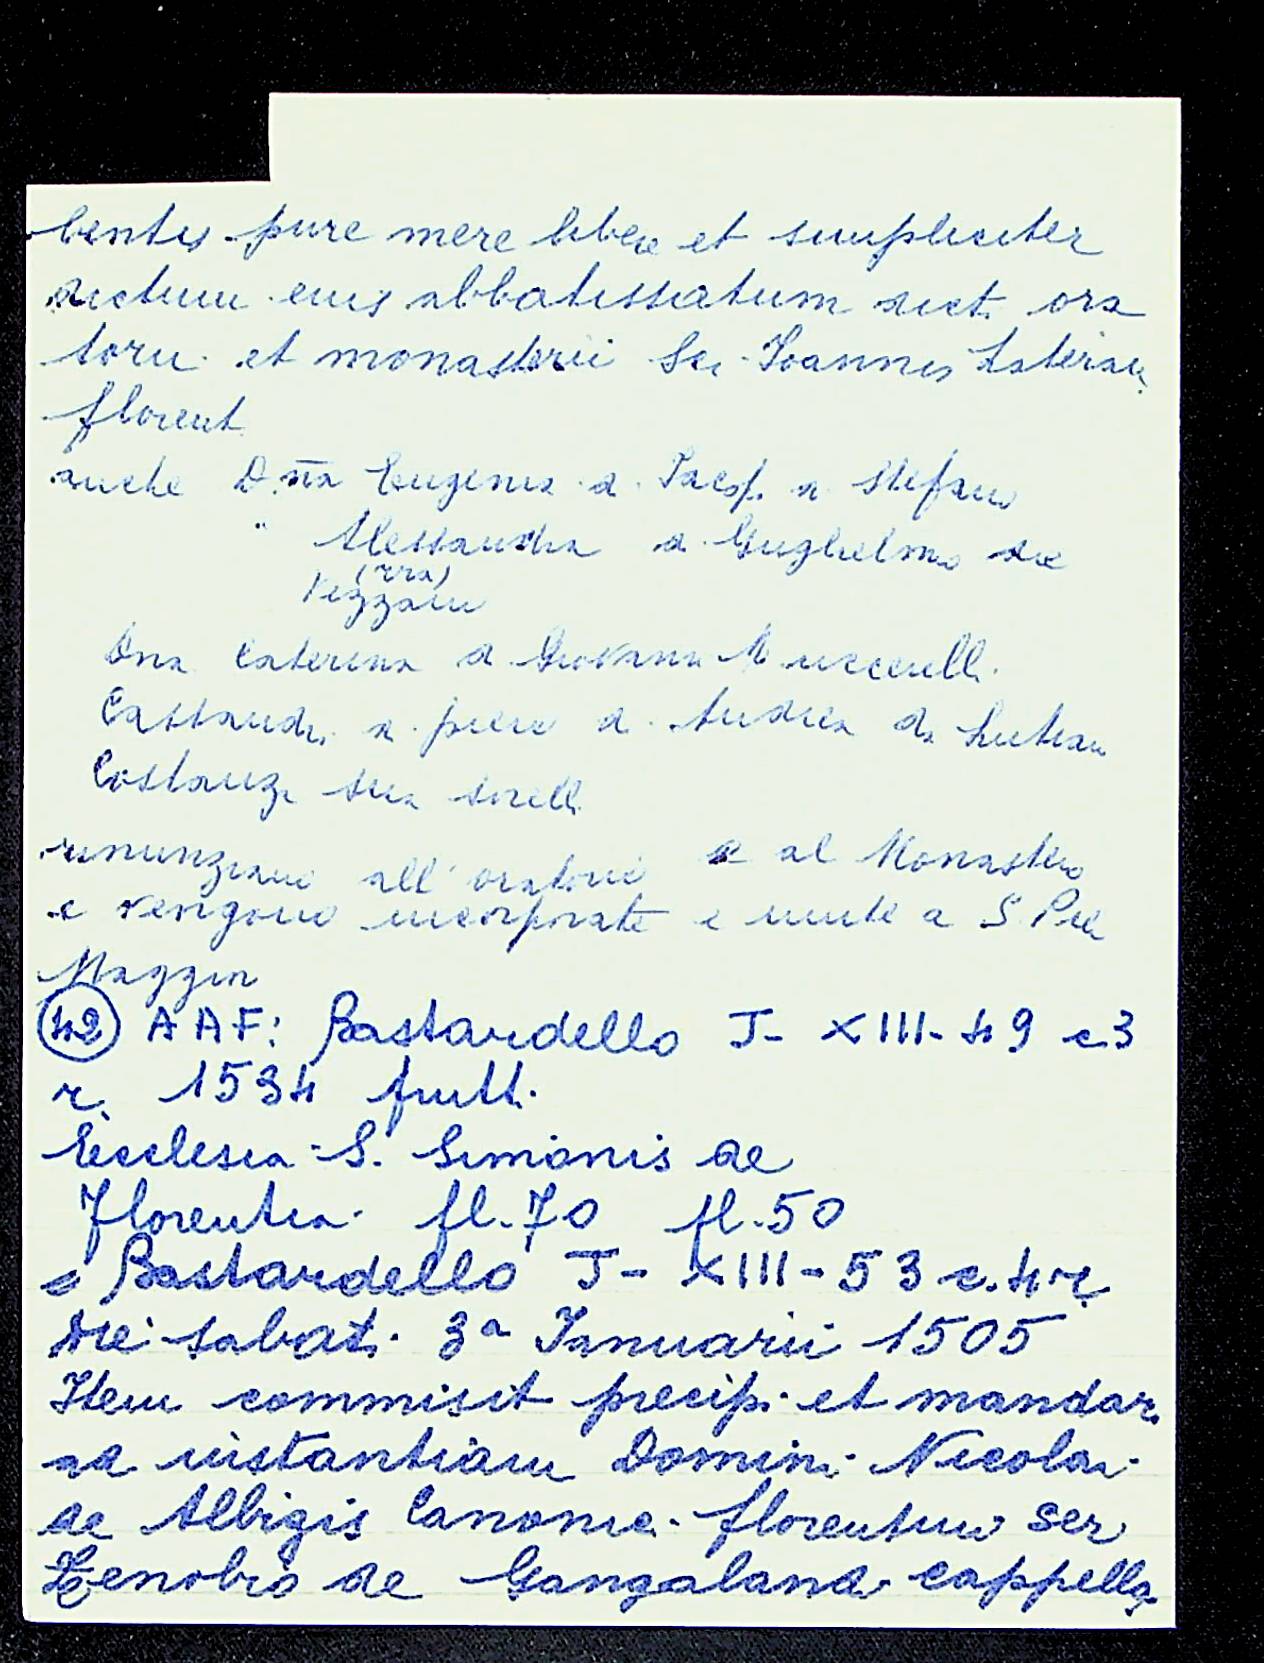 bentis pure mere libere et simpliciter
dictum eius abbatissatum dict. ora
torii et monasterii Sci Joannis Lateran.
florent
anche D.na Eugenia d. Jacop. d. Stefano
" Alessandra d. Guglielmo de
(rra)
Pezzano
Dna Caterina d Giovanni M uccerelli.
Cassandr. d. piero d. Andrea da Lutian
Costanz. sua sorell.
rinunziano all'oratorio e al Monastero
e vengono incorporate e unite a S. Pier
Maggior
(42) AAF: Bastardello J- XIII-49 c3
r. 1534 frutt.
Ecclesia S. Simonis de
Florentia. fl.70 fl.50
e Bastardello J- XIII-53 c.4r.
Die sabat. 3a Januarii 1505
Item commisit precip. et mandar.
ad instantiam Domini Nicolai
de Albizis Canonic. florentin ser
Zenobio de Gangaland. cappell.